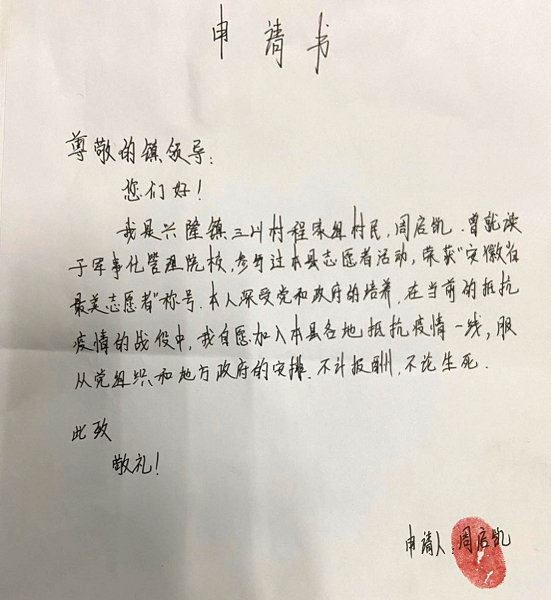 申请书
尊敬的镇领导：
您们好！
我是兴隆镇三川村程家组村民，周启凯．曾就读
于军事化管理院校，参与过本县志愿者活动，荣获“安徽省
最美志愿者”称号．本人深受党和政府的培养．在当前的抵抗
疫情的战役中，我自愿加入本县各地抵抗疫情一线，服
从党组织和地方政府的安排．不计报酬，不论生死．
此致
敬礼！
申请人：周启凯